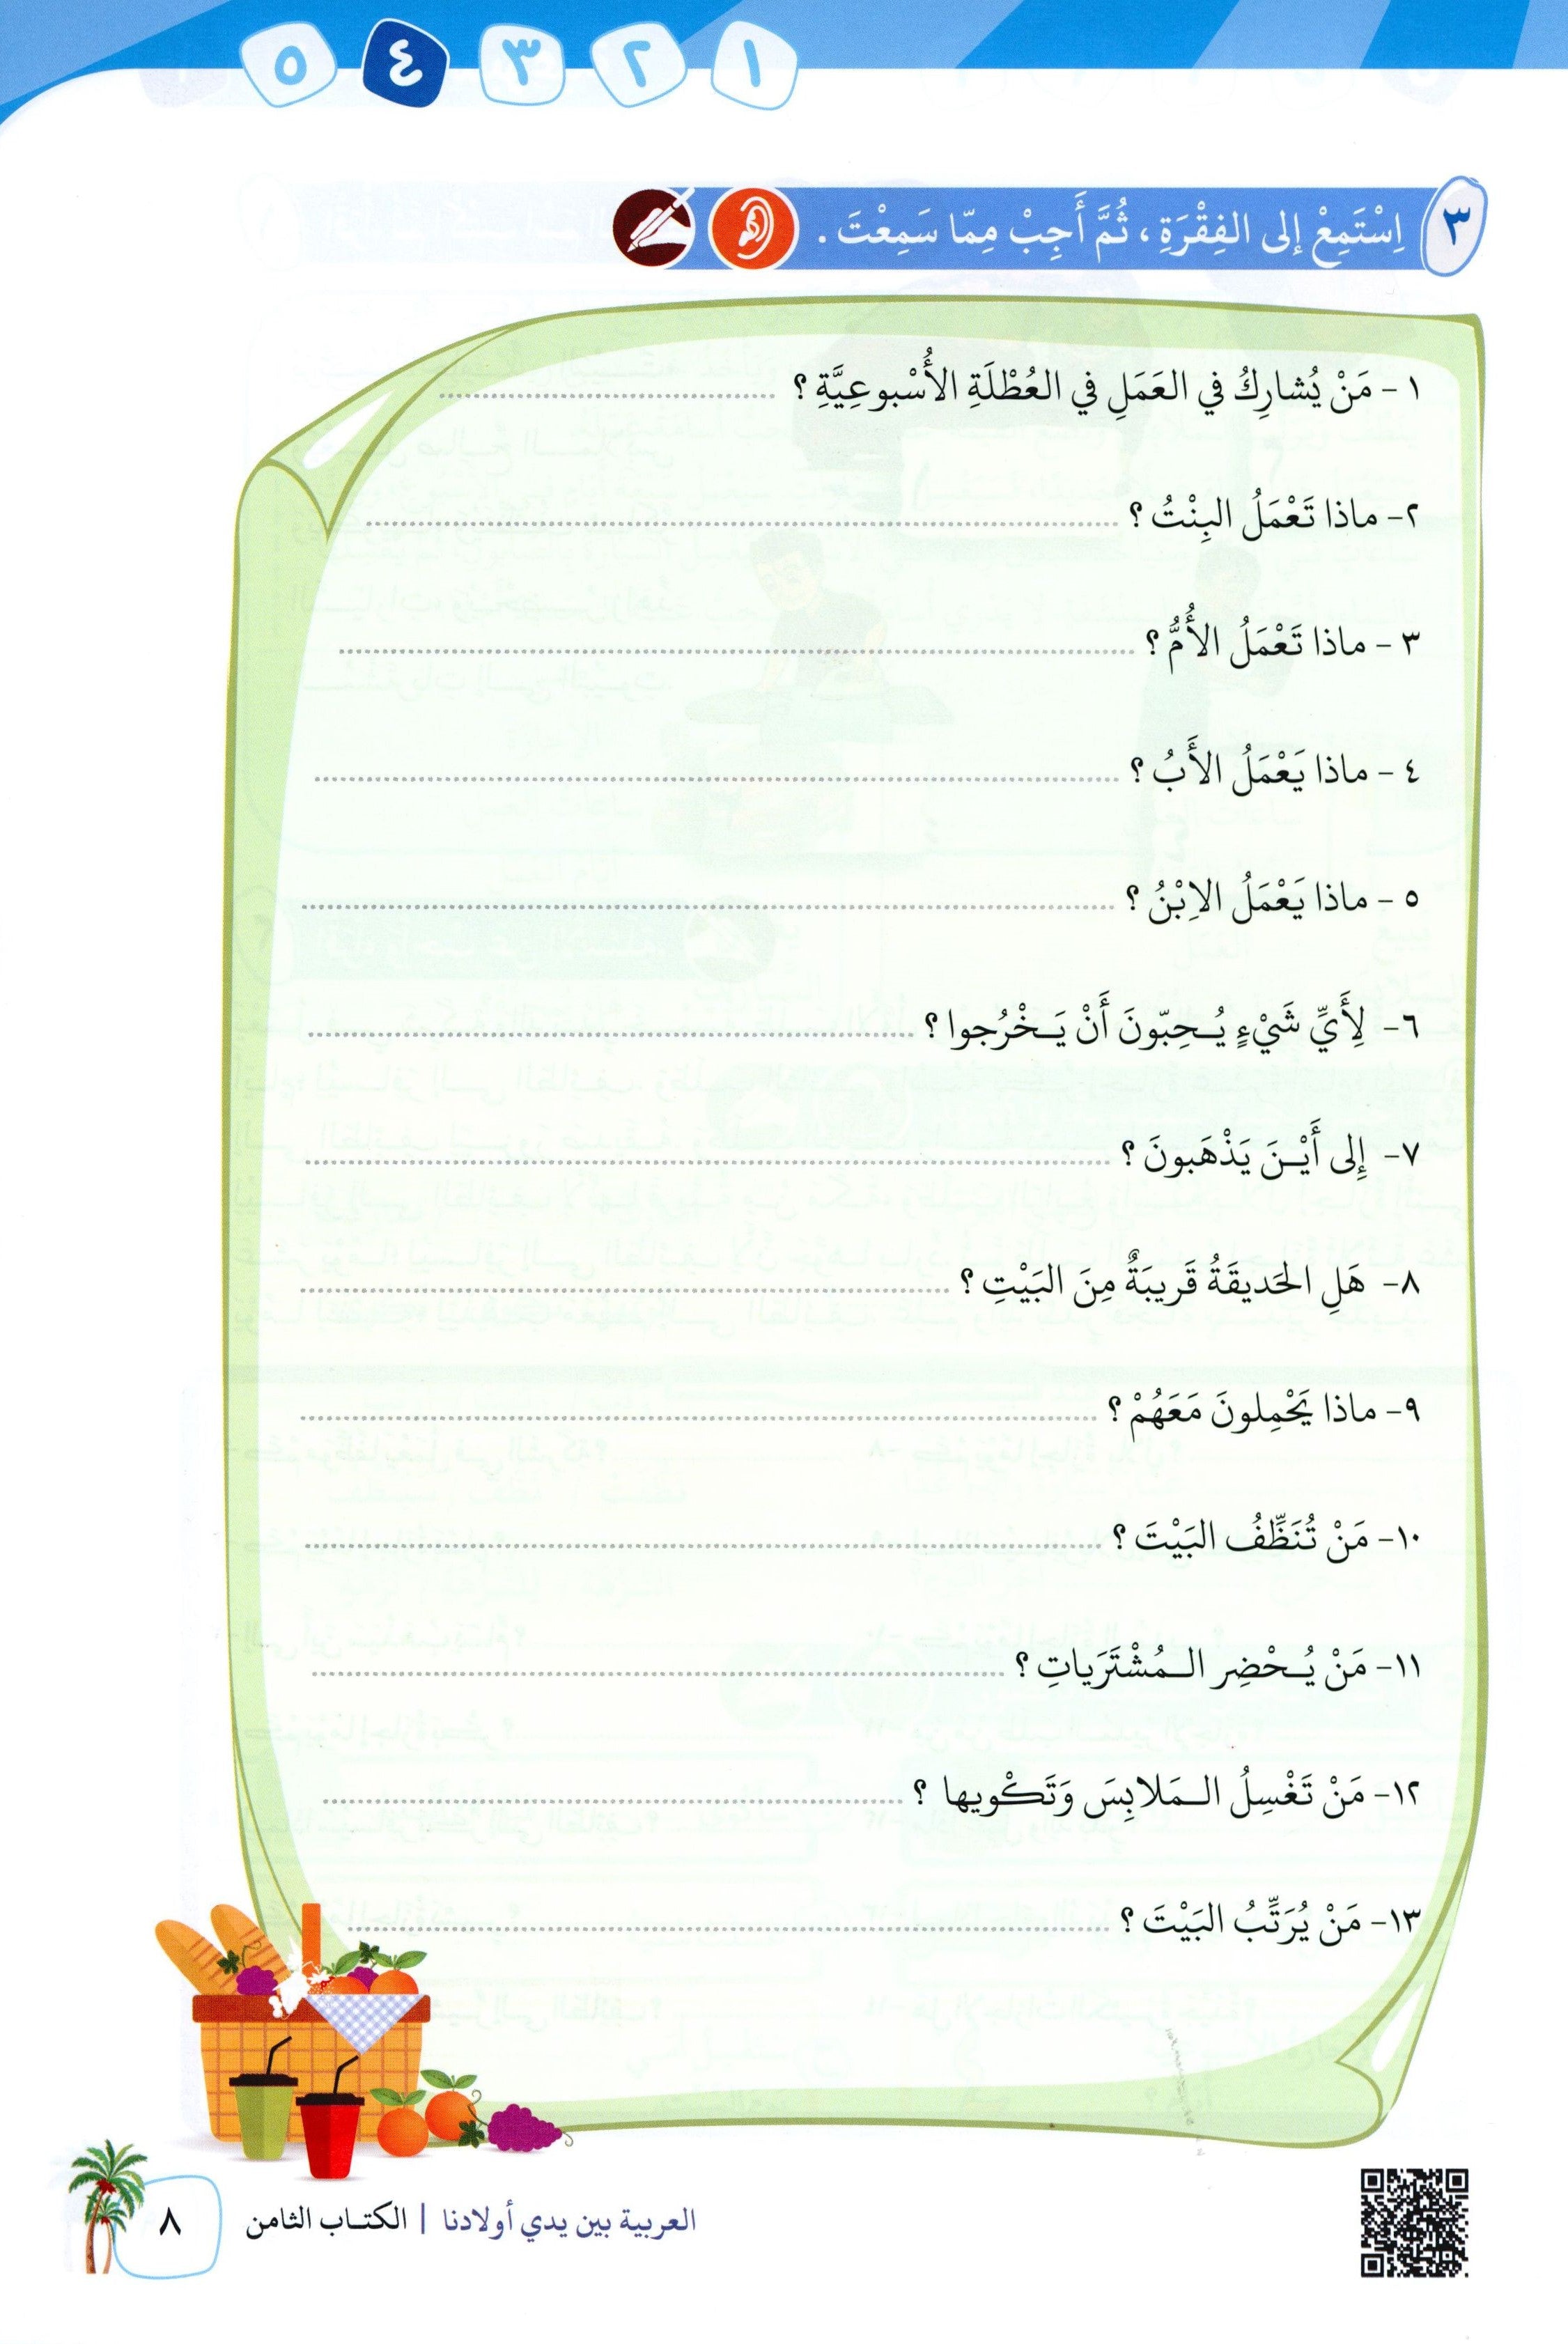 ١ ٢ ٣ ٤ ٥
٣ اِسْتَمِعْ إلى الفِقْرَةِ ، ثُمَّ أَجِبْ مِمّا سَمِعْتَ .
١ - مَنْ يُشارِكُ في العَمَلِ في العُطْلَةِ الأُسْبوعِيَّةِ ؟
٢- ماذا تَعْمَلُ البِنْتُ ؟
٣ - ماذا تَعْمَلُ الأُمُّ ؟
٤ - ماذا يَعْمَلُ الأَبُ ؟
٥ - ماذا يَعْمَلُ الاِبْنُ ؟
٦- لِأَيِّ شَيْءٍ يُـحِبّونَ أَنْ يَـخْرُجوا ؟
٧- إِلى أَيْـنَ يَذْهَبونَ ؟
٨- هَلِ الحَديقَةُ قَريبَةٌ مِنَ البَيْتِ ؟
٩- ماذا يَحْمِلونَ مَعَهُمْ ؟
١٠- مَنْ تُنَظِّفُ البَيْتَ ؟
١١- مَنْ يُـحْضِر الـمُشْتَرَياتِ ؟
١٢- مَنْ تَغْسِلُ الـمَلابِسَ وَتَكْويها ؟
١٣- مَنْ يُرَتِّبُ البَيْتَ ؟
العربية بين يدي أولادنا | الكتـاب الثامن
٨